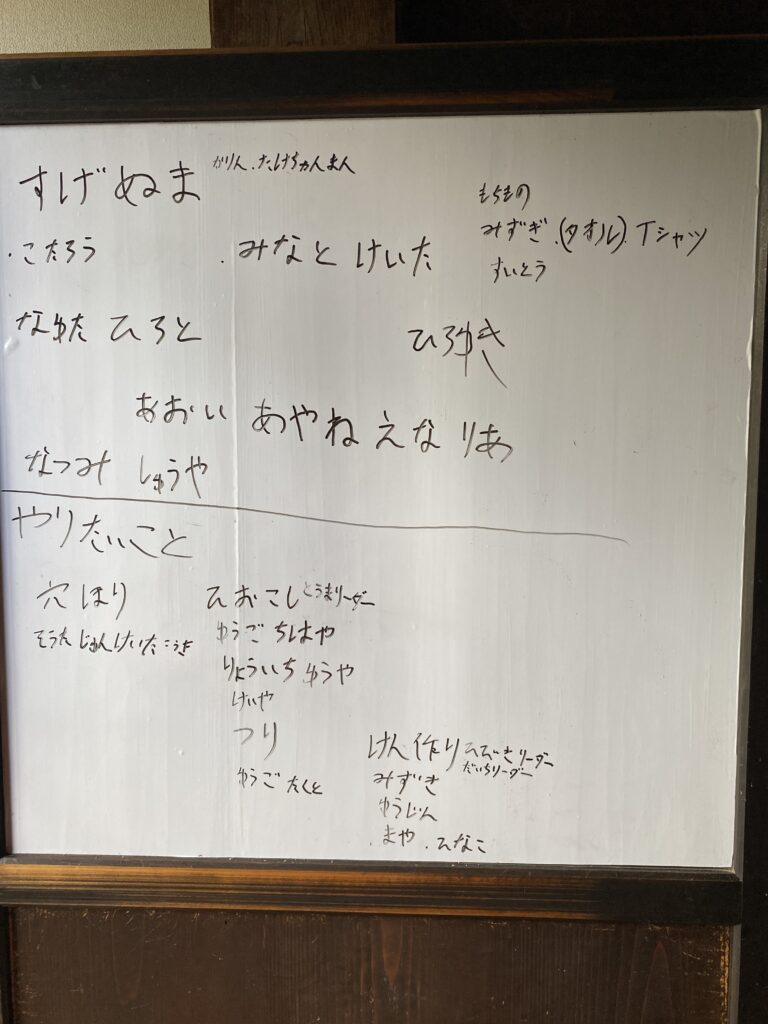 すげぬま かりん.たけちゃんまん
もちもの
みずぎ.(タオル).Tシャツ
すいとう
・こたろう ・みなと けいた
なゆた ひろと ひろゆき
あおい あやね えな りあ
なつみ しゅうや
やりたいこと
穴ほり
そうた じゅん けいた こうき
ひおこし とうまリーダー
ゆうご ちはや
りょういち ゆうや
けいや
つり
ゆうご たくと
けん作り ひびきリーダー
だいちリーダー
みずき
ゆうじん
・まや ・ひなこ